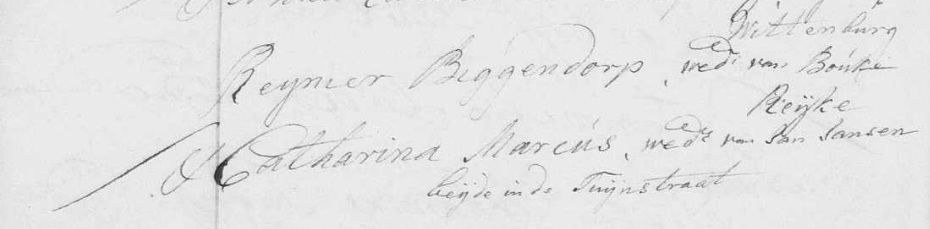 Wittenburg
Reynier Beggendorp, wedr van Bouke
Reijke
& Catharina Marcús, wede van Jan Jansen
beijde in de Tuijnstraat